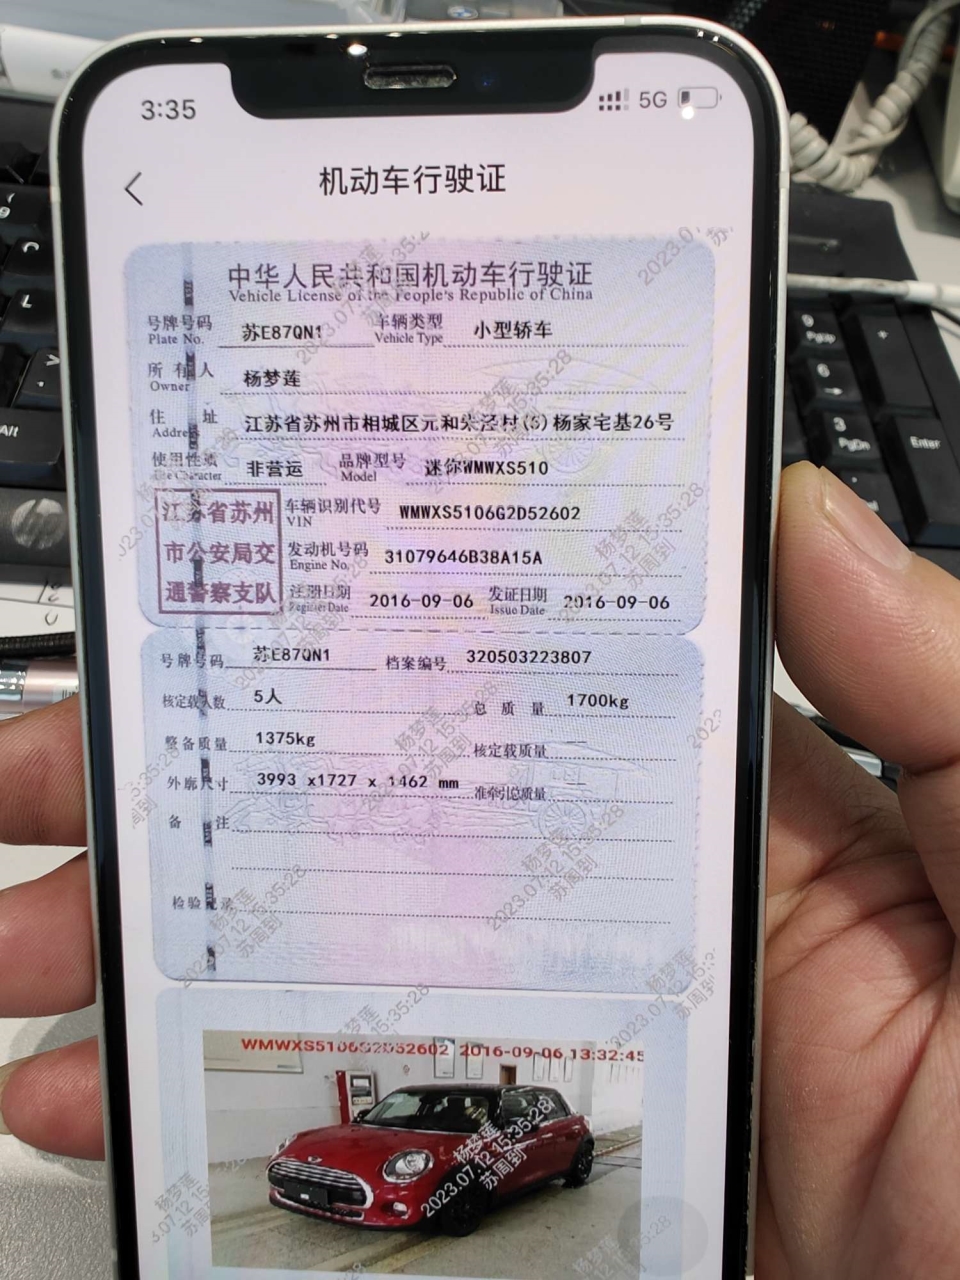 3:35
5G
机动车行驶证
中华人民共和国机动车行驶证
Vehicle License of the People's Republic of China
号牌号码 苏E87QN1 车辆类型 小型轿车
Plate No. Vehicle Type
所有人 杨梦莲
Owner
住址 江苏省苏州市相城区元和朱泾村(3)杨家宅基26号
Address
使用性质 非营运 品牌型号 迷你WMWXS510
Use Character Model
江苏省苏州
市公安局交
通警察支队
车辆识别代号 WMWXS5106G2D52602
VIN
发动机号码 31079646B38A15A
Engine No.
注册日期 2016-09-06 发证日期 2016-09-06
Register Date Issue Date
号牌号码 苏E87QN1 档案编号 320503223807
核定载人数 5人 总质量 1700kg
整备质量 1375kg 核定载质量
外廓尺寸 3993 x1727 x 1462 mm 准牵引总质量
备注
检验记录
WMWXS5106G2D52602 2016-09-06 13:32:45
杨梦莲
2023.07.12 15:35:28
苏周到
9
PgUp
+
6
3
PgDn
Enter
Alt
L